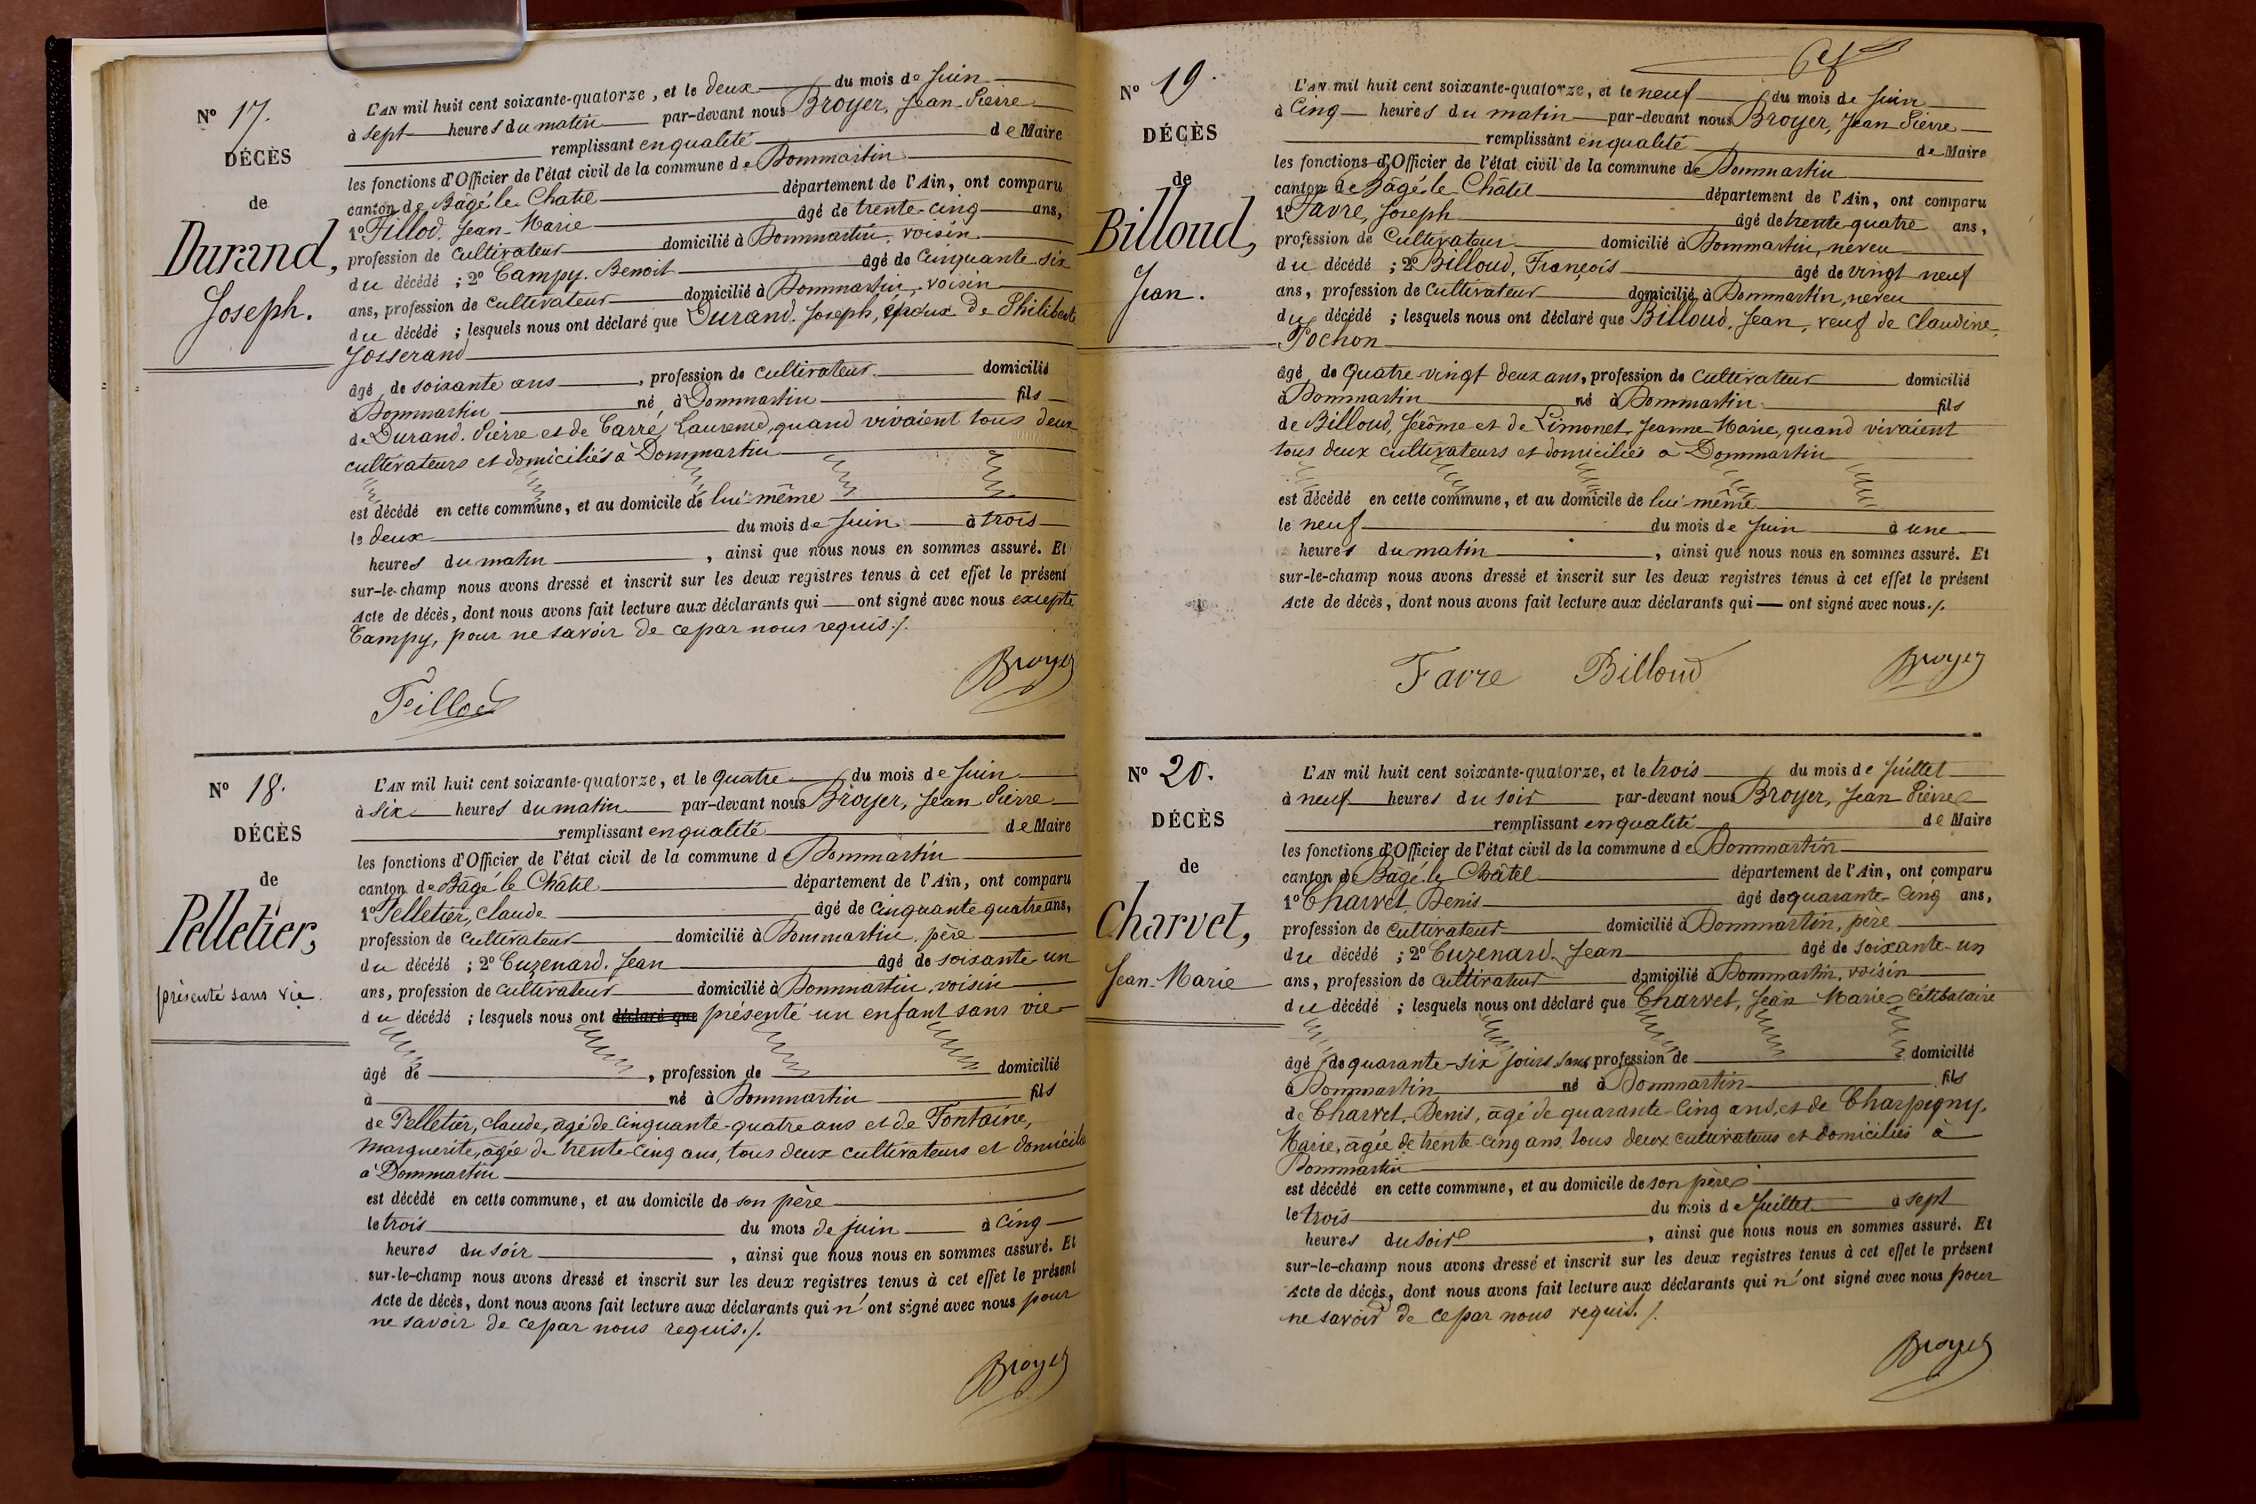 N° 17.
DÉCÈS
de
Durand,
Joseph.
L'AN mil huit cent soixante-quatorze, et le deux du mois de Juin
à sept heures du matin par-devant nous Broyer, Jean-Pierre
remplissant en qualité de Maire
les fonctions d'Officier de l'état civil de la commune de Dommartin
canton de Bâgé le Châtel département de l'Ain, ont comparu
1° Fillod, Jean-Marie âgé de trente-cinq ans,
profession de Cultivateur domicilié à Dommartin, voisin
du décédé ; 2° Campy. Benoit âgé de Cinquante-six
ans, profession de Cultivateur domicilié à Dommartin, voisin
du décédé ; lesquels nous ont déclaré que Durand. Joseph, époux de Philiberte
Josserand
âgé de soixante ans, profession de cultivateur domicilié
à Dommartin né à Dommartin fils
de Durand. Pierre et de Carré, Laurence, quand vivaient tous deux
cultivateurs et domiciliés à Dommartin
est décédé en cette commune, et au domicile de lui-même
le deux du mois de Juin à trois
heures du matin, ainsi que nous nous en sommes assuré. Et
sur-le-champ nous avons dressé et inscrit sur les deux registres tenus à cet effet le présent
Acte de décès, dont nous avons fait lecture aux déclarants qui ont signé avec nous excepté
Campy, pour ne savoir de ce par nous requis./.
Broyer
Fillod
N° 18.
DÉCÈS
de
Pelletier,
présenté sans vie.
L'AN mil huit cent soixante-quatorze, et le quatre du mois de Juin
à six heures du matin par-devant nous Broyer, Jean Pierre
remplissant en qualité de Maire
les fonctions d'Officier de l'état civil de la commune de Dommartin
canton de Bâgé le Châtel département de l'Ain, ont comparu
1° Pelletier, Claude âgé de Cinquante quatre ans,
profession de Cultivateur domicilié à Dommartin, père
du décédé ; 2° Cuzenard. Jean âgé de soixante-un
ans, profession de Cultivateur domicilié à Dommartin, voisin
du décédé ; lesquels nous ont déclaré que présenté un enfant sans vie
âgé de, profession de domicilié
à né à Dommartin fils
de Pelletier, Claude, âgé de Cinquante-quatre ans et de Fontaine,
Marguerite, âgée de trente-cinq ans, tous deux cultivateurs et domiciliés
à Dommartin
est décédé en cette commune, et au domicile de son père
le trois du mois de juin à cinq
heures du soir, ainsi que nous nous en sommes assuré. Et
sur-le-champ nous avons dressé et inscrit sur les deux registres tenus à cet effet le présent
Acte de décès, dont nous avons fait lecture aux déclarants qui n'ont signé avec nous pour
ne savoir de ce par nous requis./.
Broyer
N° 19.
DÉCÈS
de
Billoud,
Jean.
L'AN mil huit cent soixante-quatorze, et le neuf du mois de Juin
à Cinq heures du matin par-devant nous Broyer, Jean Pierre
remplissant en qualité de Maire
les fonctions d'Officier de l'état civil de la commune de Dommartin
canton de Bâgé le Châtel département de l'Ain, ont comparu
1° Favre, Joseph âgé de trente quatre ans,
profession de Cultivateur domicilié à Dommartin, neveu
du décédé ; 2° Billoud, François âgé de vingt neuf
ans, profession de Cultivateur domicilié à Dommartin, neveu
du décédé ; lesquels nous ont déclaré que Billoud, Jean, veuf de Claudine
Pochon
âgé de Quatre-vingt deux ans, profession de Cultivateur domicilié
à Dommartin né à Dommartin fils
de Billoud, Jérôme et de Limonet, Jeanne Marie, quand vivaient
tous deux cultivateurs et domiciliés à Dommartin
est décédé en cette commune, et au domicile de lui-même
le neuf du mois de Juin à une
heures du matin, ainsi que nous nous en sommes assuré. Et
sur-le-champ nous avons dressé et inscrit sur les deux registres tenus à cet effet le présent
Acte de décès, dont nous avons fait lecture aux déclarants qui ont signé avec nous./.
Favre Billoud Broyer
N° 20.
DÉCÈS
de
Charvet,
Jean-Marie
L'AN mil huit cent soixante-quatorze, et le trois du mois de Juillet
à neuf heures du soir par-devant nous Broyer, Jean Pierre
remplissant en qualité de Maire
les fonctions d'Officier de l'état civil de la commune de Dommartin
canton de Bâgé le Châtel département de l'Ain, ont comparu
1° Charvet, Denis âgé de quarante-cinq ans,
profession de Cultivateur domicilié à Dommartin, père
du décédé ; 2° Cuzenard. Jean âgé de soixante-un
ans, profession de Cultivateur domicilié à Dommartin, voisin
du décédé ; lesquels nous ont déclaré que Charvet, Jean Marie, Célibataire
âgé de quarante-six jours, sans profession de domicilié
à Dommartin né à Dommartin fils
de Charvet, Denis, âgé de quarante-cinq ans, et de Charpigny,
Marie, âgée de trente-cinq ans, tous deux cultivateurs et domiciliés à
Dommartin
est décédé en cette commune, et au domicile de son père
le trois du mois de Juillet à sept
heures du soir, ainsi que nous nous en sommes assuré. Et
sur-le-champ nous avons dressé et inscrit sur les deux registres tenus à cet effet le présent
Acte de décès, dont nous avons fait lecture aux déclarants qui n'ont signé avec nous pour
ne savoir de ce par nous requis./.
Broyer